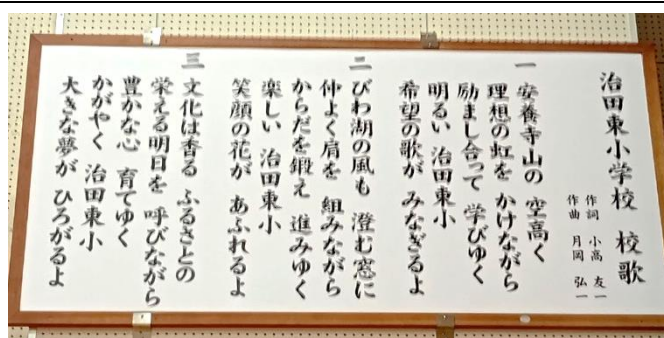 治田東小学校 校歌
作詞 小高 友一
作曲 月岡 弘一
一 安養寺山の 空高く
理想の虹を かけながら
励まし合って 学びゆく
明るい 治田東小
希望の歌が みなぎるよ
二 びわ湖の風も 澄む窓に
仲よく肩を 組みながら
からだを鍛え 進みゆく
楽しい 治田東小
笑顔の花が あふれるよ
三 文化は香る ふるさとの
栄える明日を 呼びながら
豊かな心 育てゆく
かがやく 治田東小
大きな夢が ひろがるよ